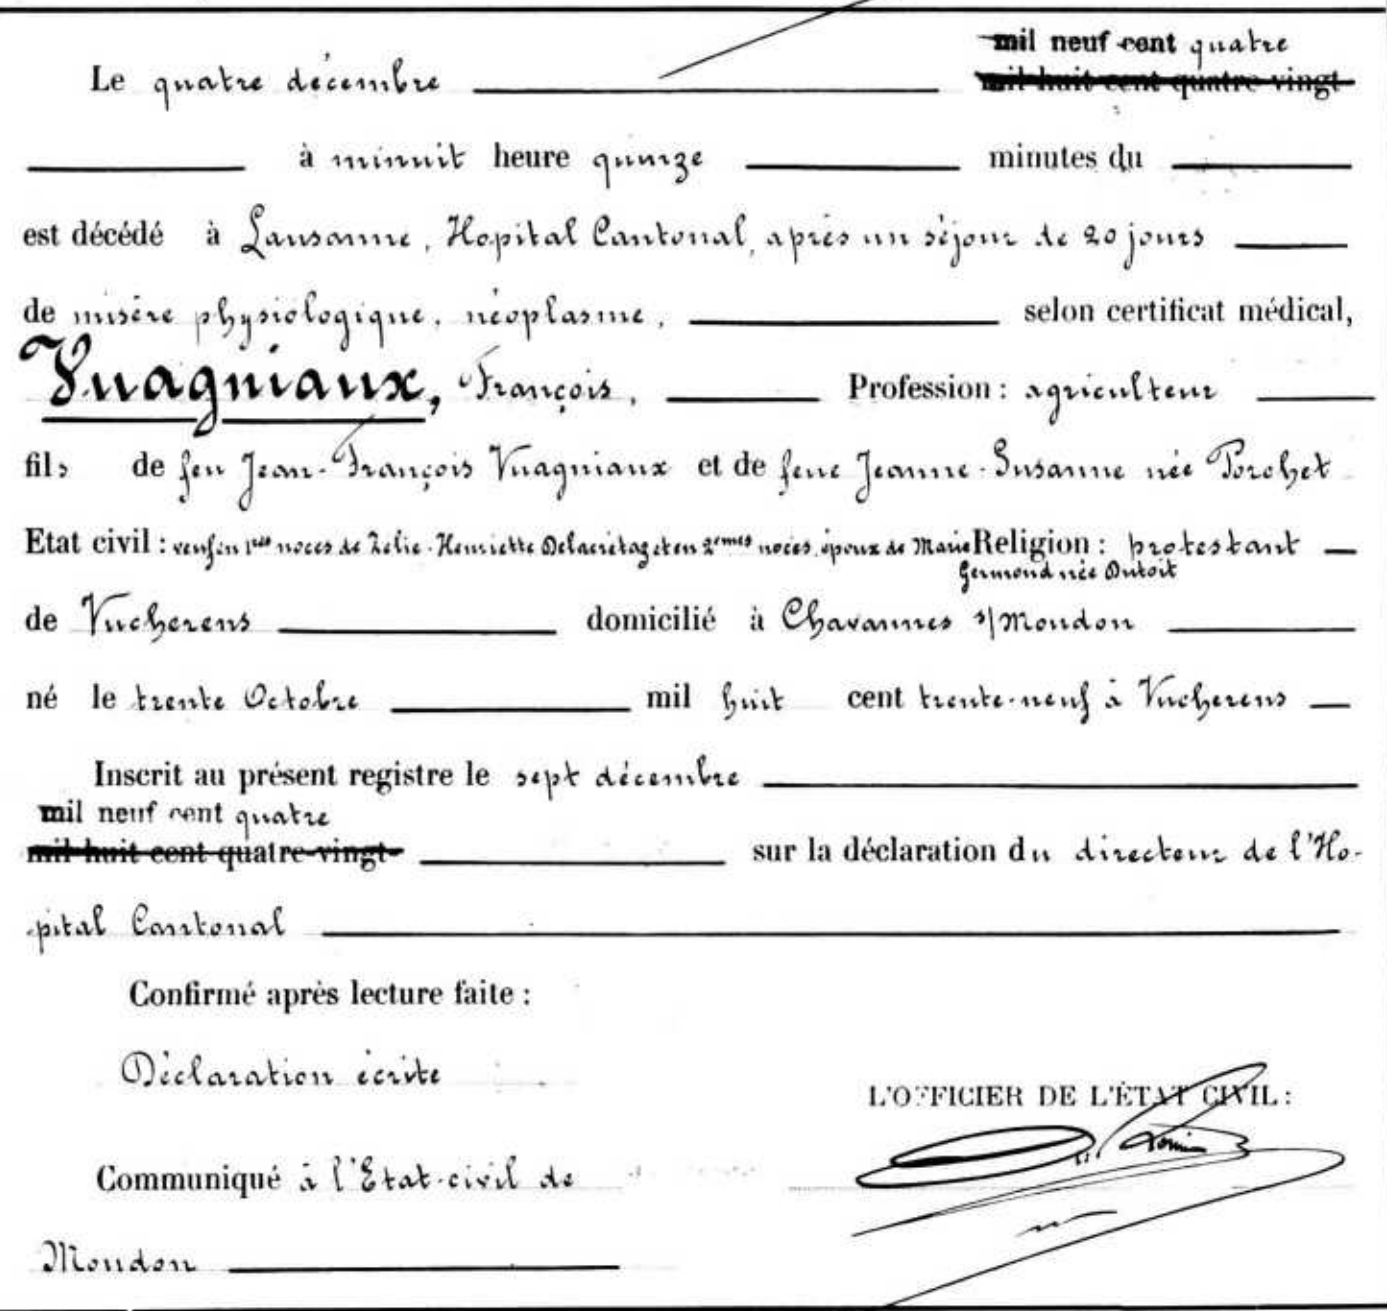 mil neuf cent quatre
Le quatre décembre mil huit cent quatre-vingt
à minuit heure quinze minutes du
est décédé à Lausanne, Hopital Cantonal, après un séjour de 20 jours
de misère physiologique, néoplasme, selon certificat médical,
Vuagniaux, François, Profession : agriculteur
fils de feu Jean-François Vuagniaux et de feue Jeanne-Susanne née Porchet
Etat civil : veuf en 1res noces de Zélie-Henriette Delacrétaz et en 2mes noces, époux de Marie Religion : protestant
Germond née Dutoit
de Vucherens domicilié à Chavannes s/Moudon
né le trente Octobre mil huit cent trente-neuf à Vucherens
Inscrit au présent registre le sept décembre
mil neuf cent quatre
mil huit cent quatre-vingt- sur la déclaration du directeur de l'Ho-
pital Cantonal
Confirmé après lecture faite :
Déclaration écrite
L'OFFICIER DE L'ÉTAT CIVIL :
Communiqué à l'Etat-civil de
Moudon